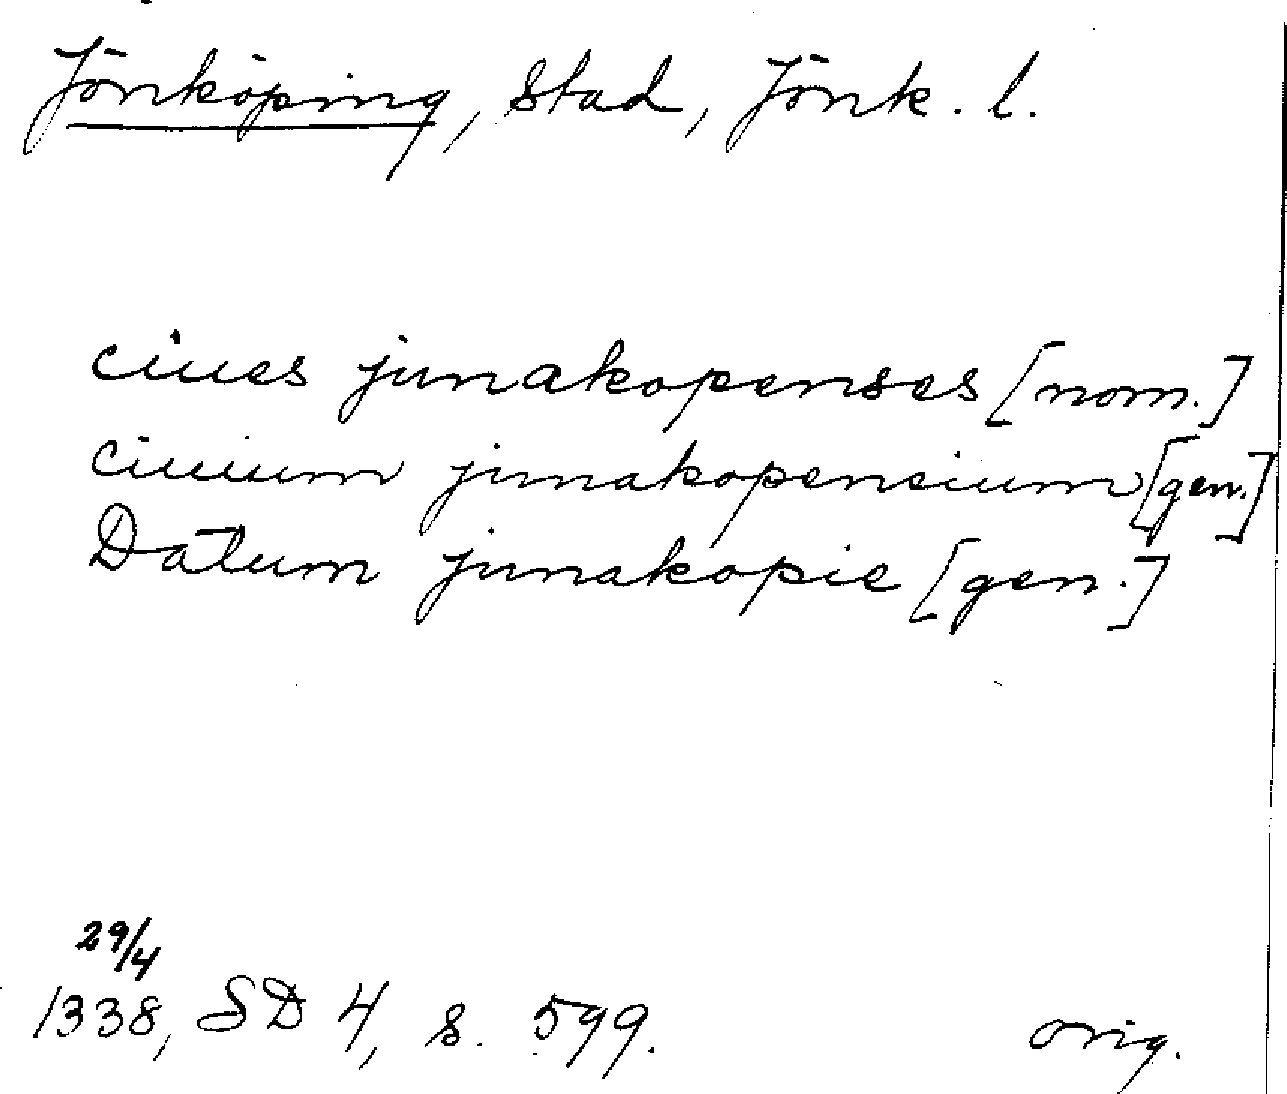 Jönköping, Stad, Jönk. l.
ciues junakopenses [nom.]
ciuium junakopensium [gen.]
Datum junakopie [gen.]
29/4
1338, SD 4, s. 599.
orig.